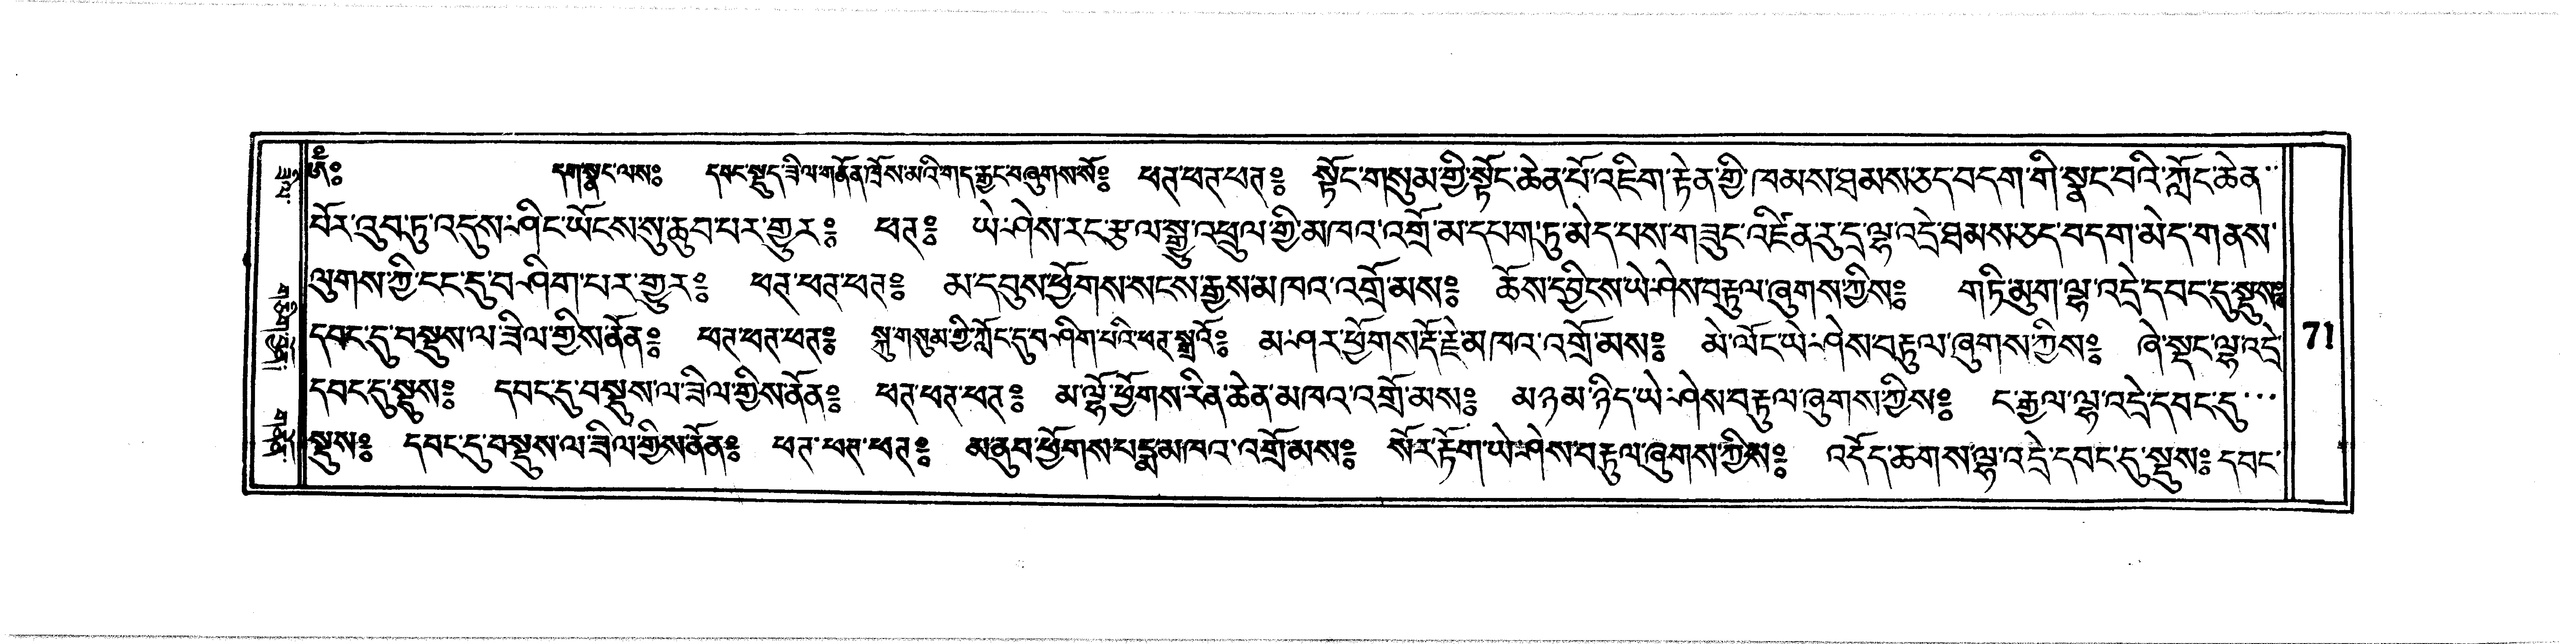 ༀ༔ དག་སྣང་ལས༔ དབང་སྡུད་ཟིལ་གནོན་ཁྲོས་མའི་གད་རྒྱང་བཞུགས་སོ༔ ཕཊ་ཕཊ་ཕཊ༔ སྟོང་གསུམ་གྱི་སྟོང་ཆེན་པོ་འཇིག་རྟེན་གྱི་ཁམས་ཐམས་ཅད་བདག་གི་སྣང་བའི་ཀློང་ཆེན་
པོར་འུབ་ཏུ་འདུས་ཤིང་ཡོངས་སུ་ཆུབ་པར་གྱུར༔ ཕཊ༔ ཡེ་ཤེས་རང་རྩལ་སྒྱུ་འཕྲུལ་གྱི་མཁའ་འགྲོ་མ་དཔག་ཏུ་མེད་པས་གཟུང་འཛིན་རུ་དྲ་ལྷ་འདྲེ་ཐམས་ཅད་བདག་མེད་གནས་
ལུགས་ཀྱི་ངང་དུ་བཤིག་པར་གྱུར༔ ཕཊ་ཕཊ་ཕཊ༔ མ་དབུས་ཕྱོགས་སངས་རྒྱས་མཁའ་འགྲོ་མས༔ ཆོས་དབྱིངས་ཡེ་ཤེས་བརྟུལ་ཞུགས་ཀྱིས༔ གཏི་མུག་ལྷ་འདྲེ་དབང་དུ་སྡུས༔
དབང་དུ་བསྡུས་ལ་ཟིལ་གྱིས་ནོན༔ ཕཊ་ཕཊ་ཕཊ༔ སྐུ་གསུམ་གྱི་ཀློང་དུ་བཤིག་པའི་ཕཊ་སྒྲའོ༔ མ་ཤར་ཕྱོགས་རྡོ་རྗེ་མཁའ་འགྲོ་མས༔ མེ་ལོང་ཡེ་ཤེས་བརྟུལ་ཞུགས་ཀྱིས༔ ཞེ་སྡང་ལྷ་འདྲེ་
71
དབང་དུ་སྡུས༔ དབང་དུ་བསྡུས་ལ་ཟིལ་གྱིས་ནོན༔ ཕཊ་ཕཊ་ཕཊ༔ མ་ལྷོ་ཕྱོགས་རིན་ཆེན་མཁའ་འགྲོ་མས༔ མཉམ་ཉིད་ཡེ་ཤེས་བརྟུལ་ཞུགས་ཀྱིས༔ ང་རྒྱལ་ལྷ་འདྲེ་དབང་དུ་་་
སྡུས༔ དབང་དུ་བསྡུས་ལ་ཟིལ་གྱིས་ནོན༔ ཕཊ་ཕཊ་ཕཊ༔ མ་ནུབ་ཕྱོགས་པདྨ་མཁའ་འགྲོ་མས༔ སོར་རྟོག་ཡེ་ཤེས་བརྟུལ་ཞུགས་ཀྱིས༔ འདོད་ཆགས་ལྷ་འདྲེ་དབང་དུ་སྡུས༔ དབང་